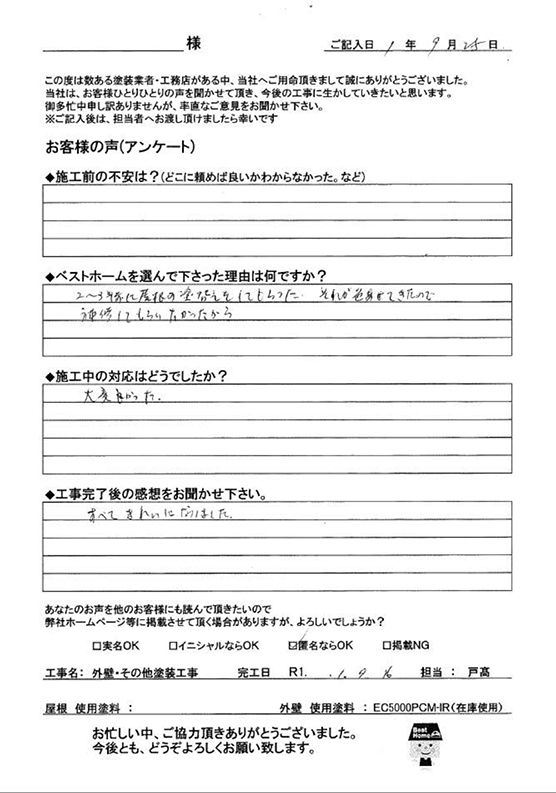 様 ご記入日 1 年 9 月 25 日
この度は数ある塗装業者・工務店がある中、当社へご用命頂きまして誠にありがとうございました。
当社は、お客様ひとりひとりの声を聞かせて頂き、今後の工事に生かしていきたいと思います。
御多忙中申し訳ありませんが、率直なご意見をお聞かせ下さい。
※ご記入後は、担当者へお渡し頂けましたら幸いです
お客様の声(アンケート)
◆施工前の不安は？(どこに頼めば良いかわからなかった。など)
◆ベストホームを選んで下さった理由は何ですか？
2～3年前に屋根の塗替えをしてもらった それが色あせてきたので
補修してもらいたかったから
◆施工中の対応はどうでしたか？
大変良かった.
◆工事完了後の感想をお聞かせ下さい。
すべてきれいになりました.
あなたのお声を他のお客様にも読んで頂きたいので
弊社ホームページ等に掲載させて頂く場合がありますが、よろしいでしょうか？
□実名OK □イニシャルならOK ☑匿名ならOK □掲載NG
工事名： 外壁・その他塗装工事 完工日 R1. .1.9.16 担当： 戸髙
屋根 使用塗料： 外壁 使用塗料：EC5000PCM-IR(在庫使用)
お忙しい中、ご協力頂きありがとうございました。
今後とも、どうぞよろしくお願い致します。
Best
Home